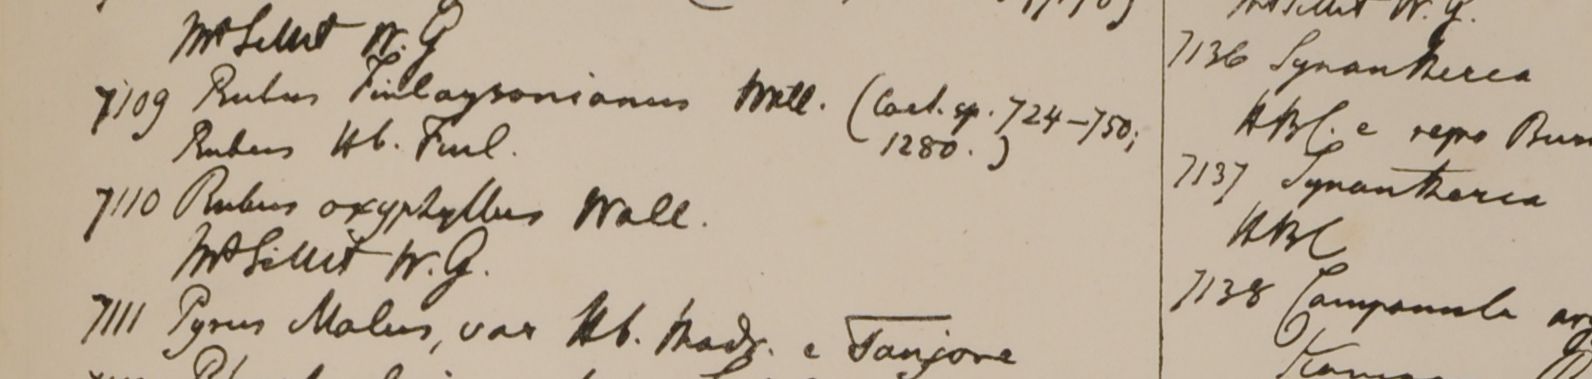 Mt Sillet W. G
7109 Rubus Finlaysonianus Wall. (Cat. sp. 724–750;
Rubus Hb. Finl. 1280.)
7110 Rubus oxyphyllus Wall.
Mt Sillet W. G.
7111 Pyrus Malus, var Hb. Madr. e Tanjore
Mt Sillet W. G.
7136 Synantherea
HBC. e regno Burm
7137 Synantherea
HBC
7138 Campanula